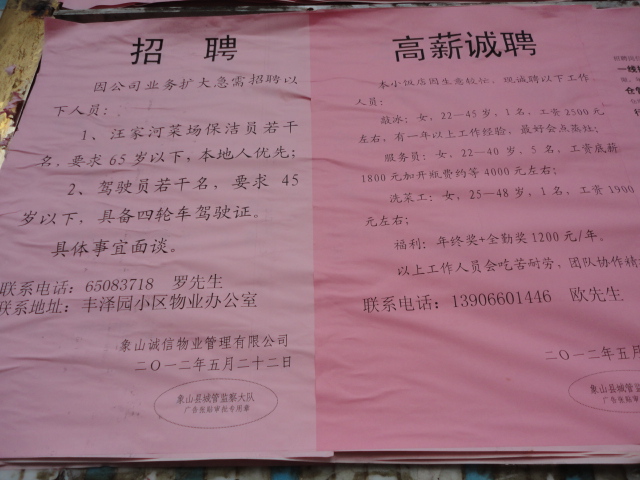 招 聘
因公司业务扩大急需招聘以
下人员：
1、汪家河菜场保洁员若干
名，要求65岁以下，本地人优先；
2、驾驶员若干名，要求 45
岁以下，具备四轮车驾驶证。
具体事宜面谈。
联系电话：65083718 罗先生
联系地址：丰泽园小区物业办公室
象山诚信物业管理有限公司
二〇一二年五月二十二日
象山县城管监察大队
广告张贴审批专用章
高薪诚聘
本小饭店因生意较忙，现诚聘以下工作
人员：
敲冰：女，22—45岁，1名，工资2500元
左右，有一年以上工作经验，最好会点蒸灶；
服务员：女，22—40岁，5名，工资底薪
1800元加开瓶费约等4000元左右；
洗菜工：女，25—48岁，1名，工资1900
元左右；
福利：年终奖+全勤奖1200元/年。
以上工作人员会吃苦耐劳、团队协作精
联系电话：13906601446 欧先生
二〇一二年五月
象山县城管监察大
广告张贴审批专用章
一线
仓管